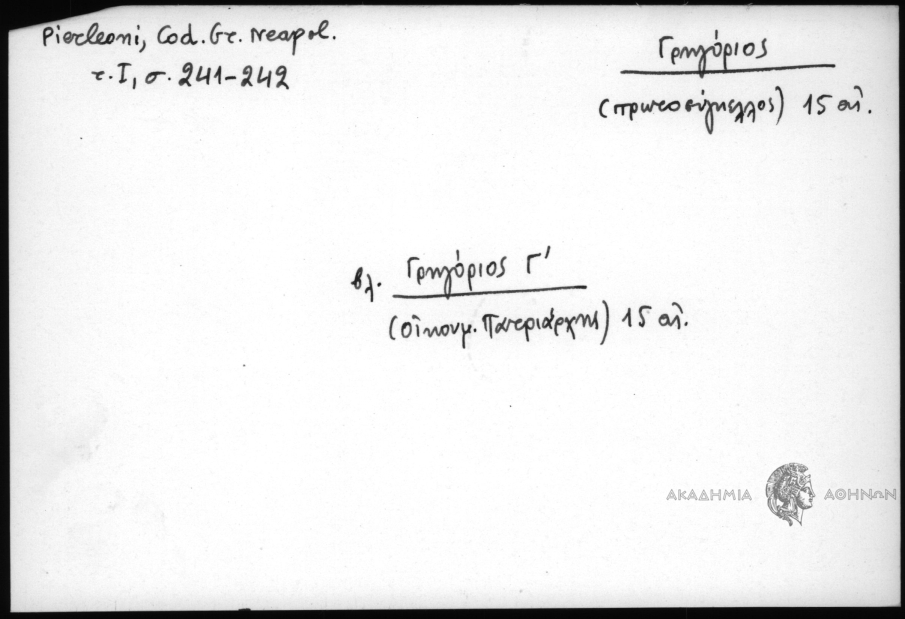 Pierleoni, Cod. Gr. Neapol.
τ. I, σ. 241-242
Γρηγόριος
(πρωτοσύγκελλος) 15 αἰ.
βλ. Γρηγόριος Γ'
(οἰκουμ. Πατριάρχης) 15 αἰ.
ΑΚΑΔΗΜΙΑ ΑΘΗΝΩΝ